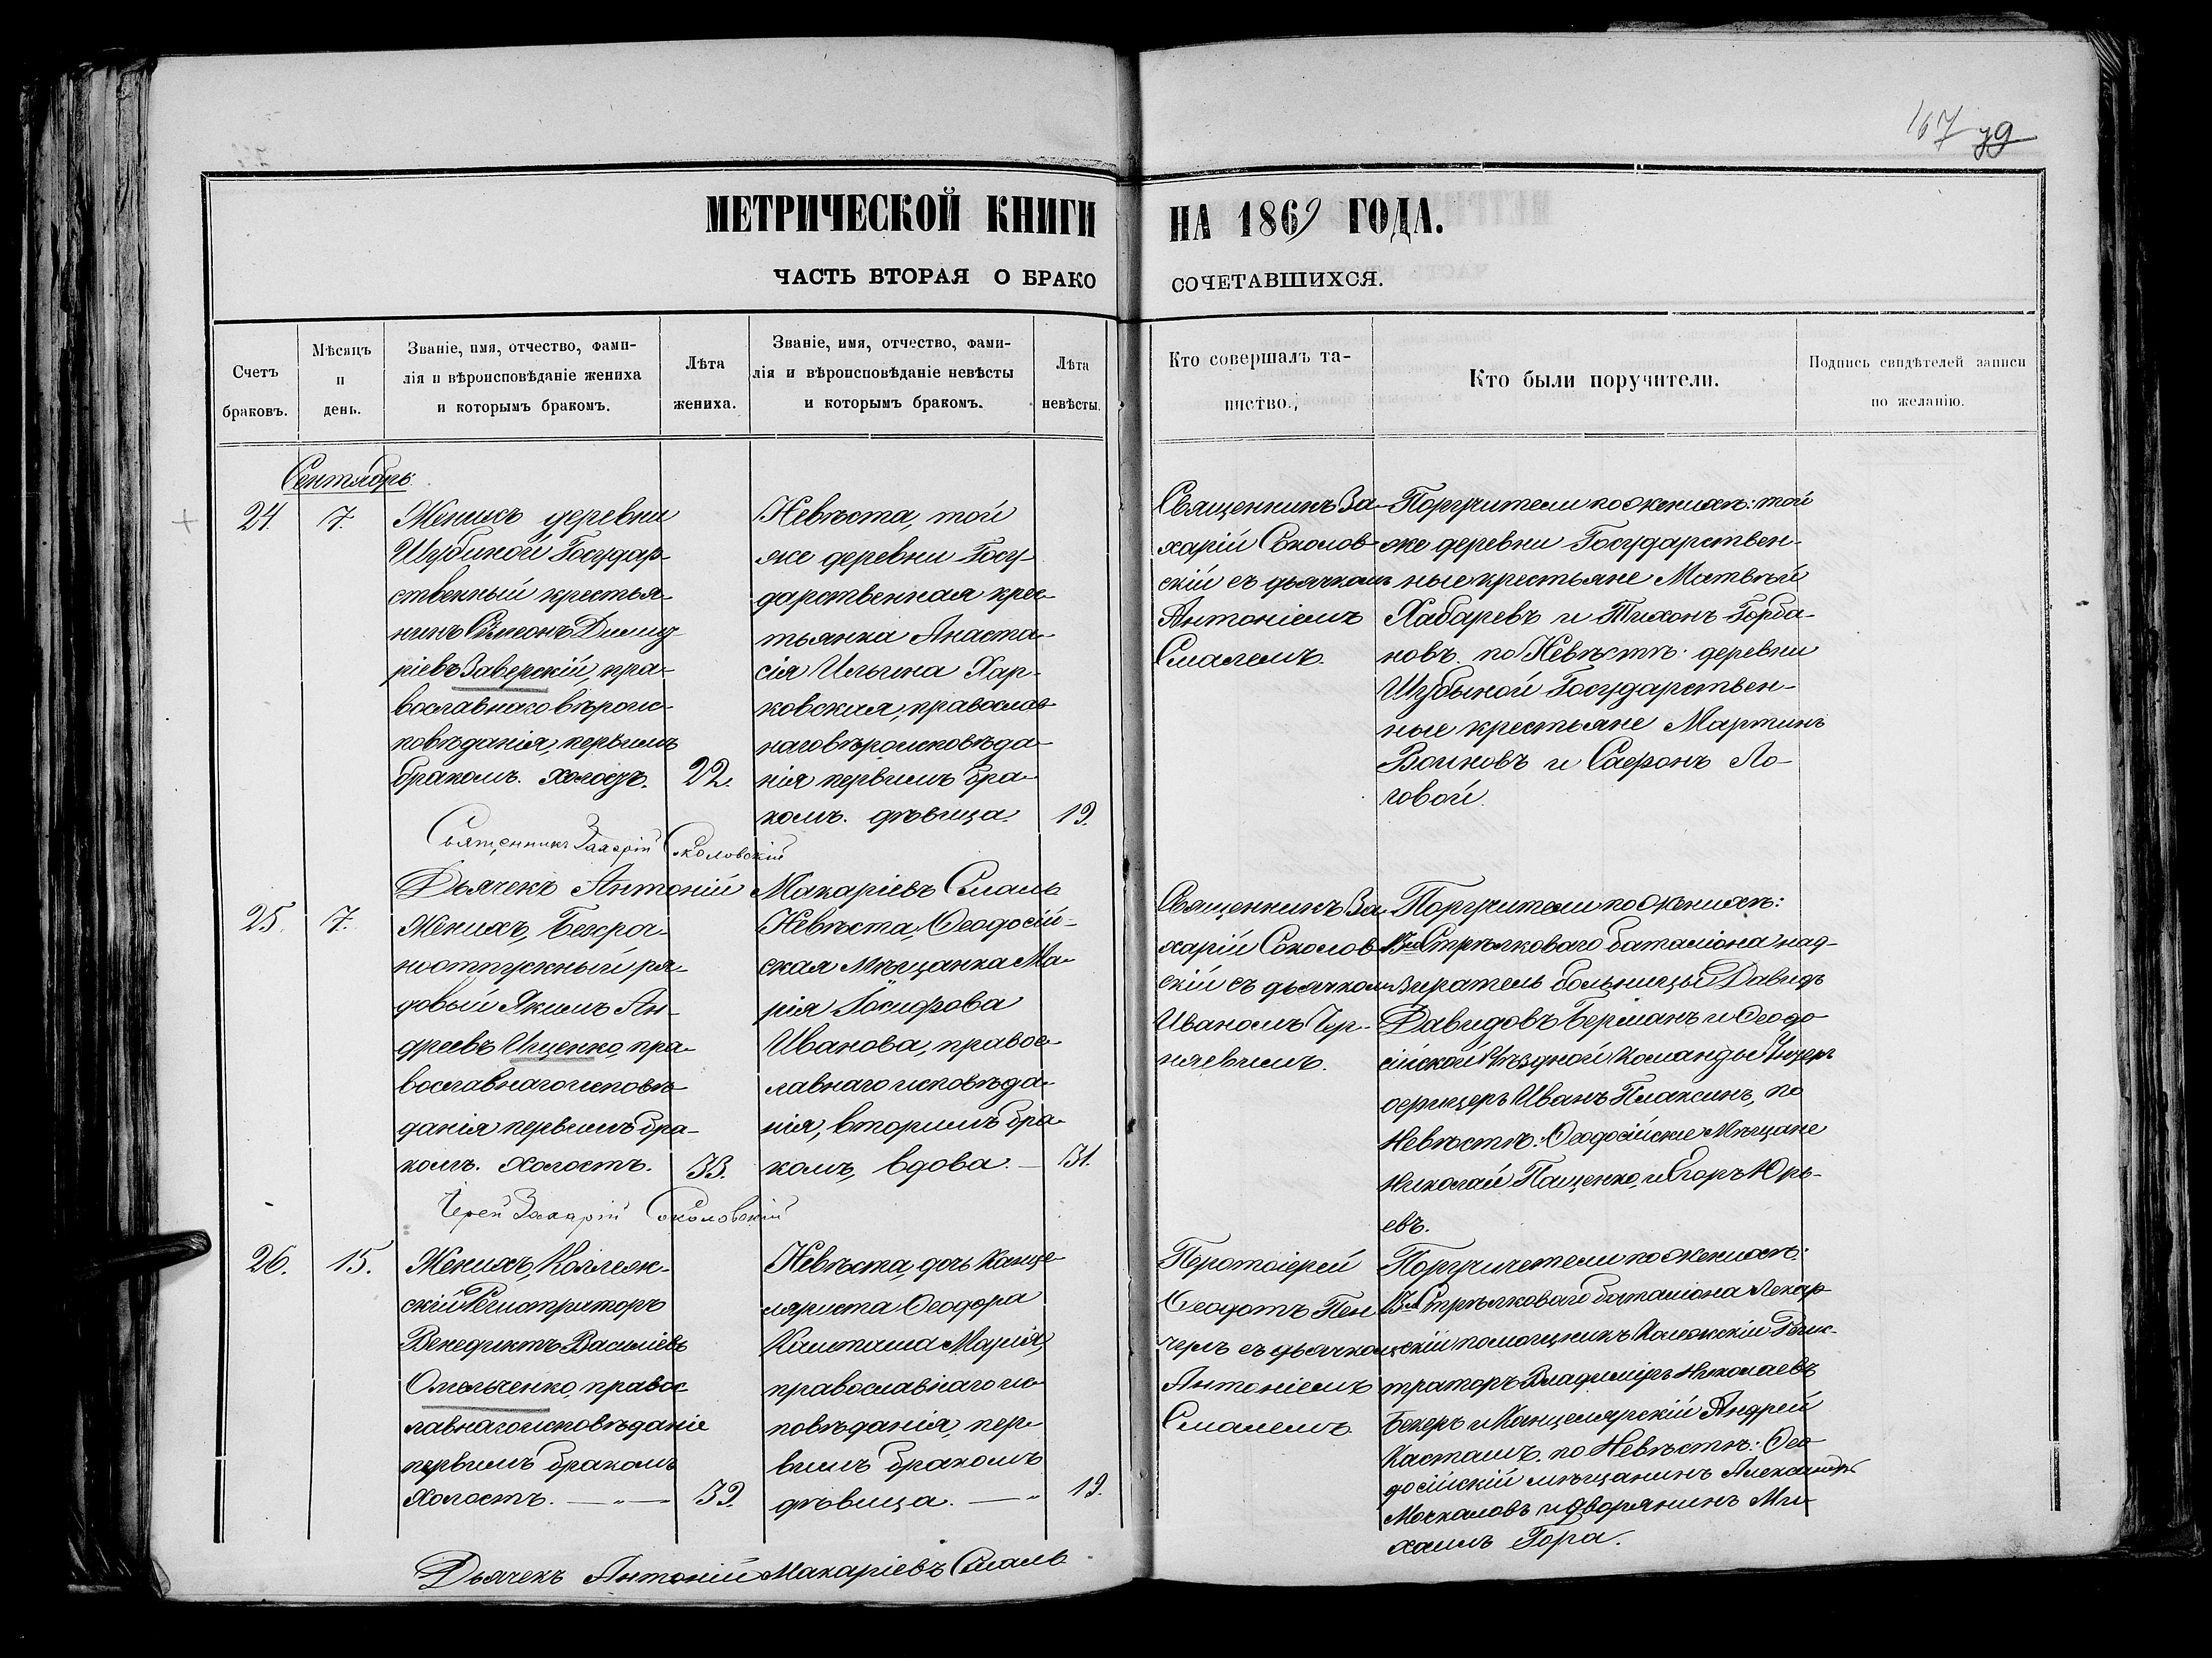 167 79
МЕТРИЧЕСКОЙ КНИГИ НА 1869 ГОДА.
ЧАСТЬ ВТОРАЯ О БРАКОСОЧЕТАВШИХСЯ.
Счетъ браковъ.
Мѣсяцъ и день.
Званіе, имя, отчество, фами-
лія и вѣроисповѣданіе жениха
и которымъ бракомъ.
Лѣта жениха.
Званіе, имя, отчество, фами-
лія и вѣроисповѣданіе невѣсты
и которымъ бракомъ.
Лѣта невѣсты.
Кто совершалъ та-
инство.
Кто были поручители.
Подпись свидѣтелей записи
по желанію.
Сентябрь.
24. 7.
Женихъ деревни
Шубиной Государ-
ственный крестья-
нинъ Симеонъ Димит-
ріевъ Заверскій, пра-
вославнаго вѣроис-
повѣданія, первымъ
бракомъ. холостъ. 22.
Невѣста, той
же деревни Госу-
дарственная крес-
тьянка Анаста-
сія Ильина Хар-
ковская, православ-
наго вѣроисповѣда-
нія первымъ бра-
комъ. дѣвица. 19.
Священникъ За-
харій Соколов-
скій съ дьячкомъ
Антоніемъ
Смалемъ.
Поручители по женихѣ: той
же деревни Государствен-
ные крестьяне Матвѣй
Хабаревъ и Тихонъ Горба-
новъ. по Невѣстѣ: деревни
Шубыной Государствен-
ные крестьяне Мартинъ
Воиновъ и Сафронъ Ло-
говой.
Священникъ Захарій Соколовскій
Дьячекъ Антоній Макаріевъ Смаль
25. 7.
Женихъ, Безсроч-
ноотпускный ря-
довый Якимъ Ан-
дреевъ Ищенко, пра-
вославнаго исповѣ-
данія первымъ бра-
комъ. Холостъ. 33.
Невѣста, Ѳеодосій-
ская Мѣщанка Ма-
рія Іосифова
Иванова, правос-
лавнаго исповѣда-
нія, вторымъ бра-
комъ, вдова. 31.
Священникъ За-
харій Соколов-
скій съ дьячкомъ
Иваномъ Чер-
нявымъ.
Поручители по женихѣ:
Стрѣлковаго баталіона над-
зиратель больницы Давидъ
Давидовъ Берманъ и Ѳеодо-
сійской Уѣздной Команды Унтеръ
офицеръ Иванъ Плаксинъ, по
Невѣстѣ: Ѳеодосійские Мѣщане
Николай Пащенко, и Егоръ Юрь-
евъ.
Іерей Захарій Соколовскій
26. 15.
Женихъ, Коллеж-
скій Регистраторъ
Венедиктъ Василіевъ
Омельченко, правос-
лавнаго исповѣданіе
первымъ бракомъ
Холостъ. 39.
Невѣста, дочь Канце-
ляриста Ѳеодора
Марія,
православнаго ис-
повѣданія, пер-
вымъ бракомъ
дѣвица. 19.
Протоіерей
Ѳеодотъ Пен-
черъ съ дьячкомъ
Антоніемъ
Смалемъ
Поручители по женихѣ:
Стрѣлковаго баталіона Лекар-
скій помощникъ Коллежскій Регис-
траторъ Владиміръ Николаевъ
Бекеръ и Канцелярскій Андрей
по Невѣстѣ: Ѳео-
досійскій мѣщанинъ Александръ
Москаловъ и дворянинъ Ми-
хаилъ Гора.
Дьячекъ Антоній Макаріевъ Смаль